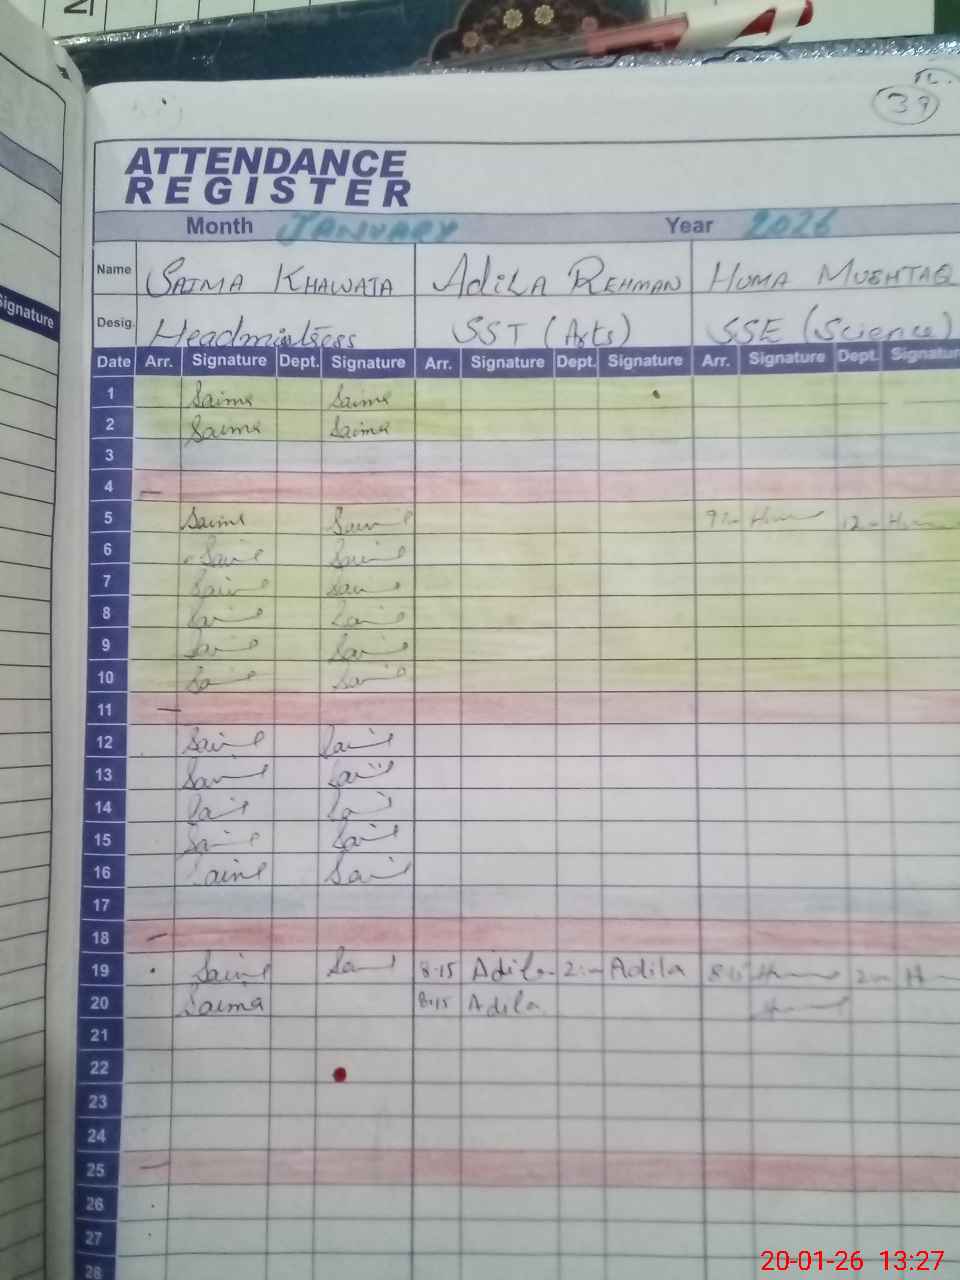 39
ATTENDANCE
REGISTER
Month JANUARY Year 2026
Name SAIMA KHAWAJA Adila REHMAN HUMA MUSHTAQ
Desig. Headmistress SST (Arts) SSE (Science)
Signature
Date Arr. Signature Dept. Signature Arr. Signature Dept. Signature Arr. Signature Dept. Signatur
1 Saima Saima
2 Saima Saima
3
4 —
5 Saima Saima Huma 12 Huma
6 Saima Saima
7 Saima Saima
8 Saima Saima
9 Saima Saima
10 Saima Saima
11 —
12 Saima Saima
13 Saima Saima
14 Saima Saima
15 Saima Saima
16 Saima Saima
17
18 —
19 Saima Saima 8.15 Adila Adila 8.15 Huma
20 Saima 8.15 Adila Huma
21
22
23
24
25 —
26
27
28
20-01-26 13:27